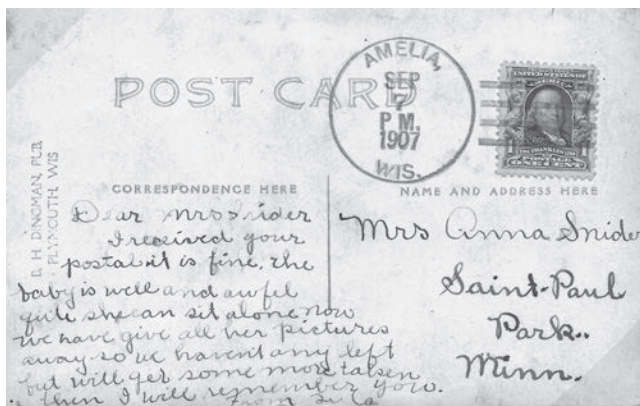 POST CARD
AMELIA,
SEP
7
P M.
1907
WIS.
UNITED STATES OF
FRANKLIN
POSTAGE
ONE CENT
E. H. DINGMAN, PUB
PLYMOUTH, WIS
CORRESPONDENCE HERE
NAME AND ADDRESS HERE
Dear Mrs Snider
I received your
postal it is fine. the
baby is well and awful
qute she can sit alone now
we have give all her pictures
away so we havent any left
but will get some more taken
then I will remember you.
from
Mrs Anna Snider
Saint-Paul
Park.
Minn.